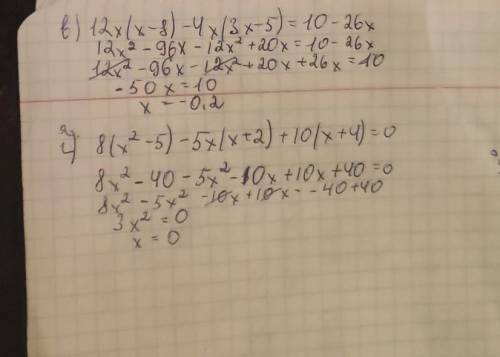 в) 12x(x-8)-4x(3x-5)=10-26x
12x²-96x-12x²+20x=10-26x
12x²-96x-12x²+20x+26x=10
-50x=10
x=-0,2
г) 8(x²-5)-5x(x+2)+10(x+4)=0
8x²-40-5x²-10x+10x+40=0
8x²-5x²-10x+10x=-40+40
3x²=0
x=0